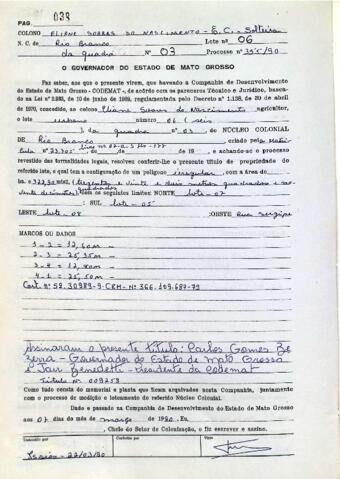 PAG. 038
COLONO ELIANE SOARES DO NASCIMENTO - E.C. - Solteira
N. C. de Rio Branco Lote nº 06
da quadra Nº 03 Processo nº 395/90
O GOVERNADOR DO ESTADO DE MATO GROSSO
Faz saber, aos que o presente virem, que havendo a Companhia de Desenvolvimento
do Estado de Mato Grosso - CODEMAT -, de acordo com os pareceres Técnico e Jurídico, basea-
da na Lei nº 2.093, de 10 de junho de 1969, regulamentada pelo Decreto nº 1.138, de 20 de abril
de 1970, concedido, ao colono Eliane Soares do Nascimento agricultor,
o lote urbano número 06 (seis
) da quadra nº 03, do NÚCLEO COLONIAL
DE Rio Branco, criado pela Matrí-
cula nº 23.705 de de 19 , e achando-se o processo
revestido das formalidades legais, resolveu conferir-lhe o presente título de propriedade do
referido lote, o qual tem a configuração de um polígono irregular, com a área de
ha 322,90 mts2, (trezentos e vinte e dois metros quadrados e no-
venta decímetros) com os seguintes limites: NORTE lote - 07
; SUL lote - 05
LESTE lote - 08 ; OESTE Rua Sergipe
MARCOS OU DADOS
1 - 2 = 12,60m
2 - 3 = 25,35m
3 - 4 = 12,80m
4 - 1 = 25,50m
Cart. nº 52.30989-9 - CPM - Nº 366.109.687-79
Assinaram o presente título: Carlos Gomes Be
zerra - Governador do Estado de Mato Grosso
e Jair Benedetti - Presidente da Codemat
Título nº 009253
Como tudo consta do memorial e planta que ficam arquivados nesta Companhia, juntamente
com o processo de medição e loteamento do referido Núcleo Colonial.
Dado e passado na Companhia de Desenvolvimento do Estado de Mato Grosso
aos 07 dias do mês de março de 1990. Eu,
, Chefe do Setor de Colonização, o fiz escrever e assino.
Conferido por
Visto
22/03/90